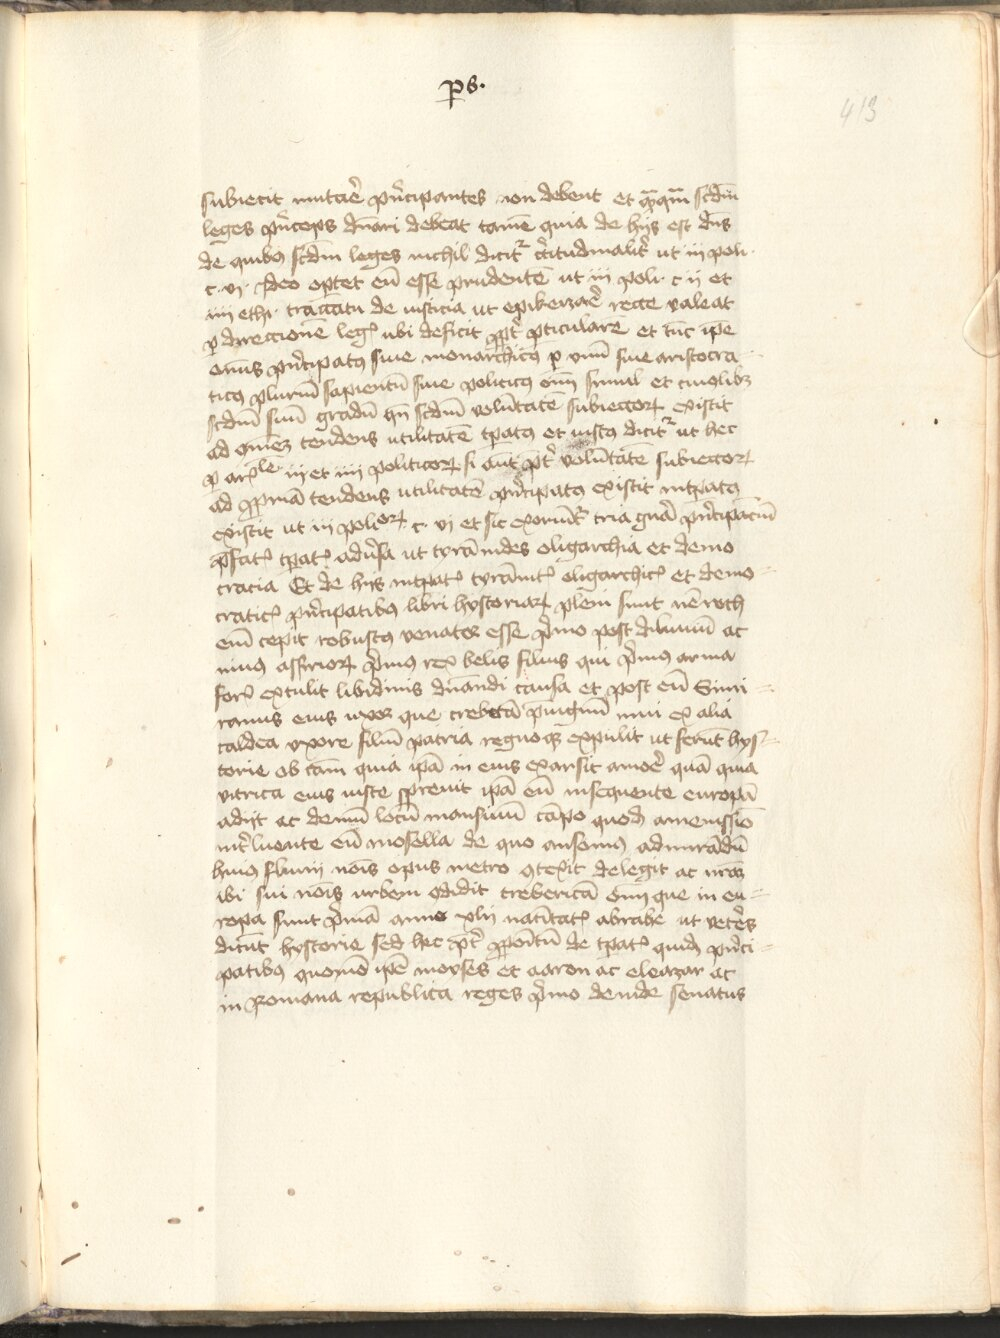 ps.
413
subiecit mutare principantes non debent et quamquam secundum
leges princeps dominari debeat tamen quia de hijs est dominus
de quibus secundum leges nichil dicitur certitudinaliter ut in poli.
c. vi. Ideo oportet eum esse prudentem ut iii poli. c ii et
iiii ethi. tractatu de iusticia ut epikeizare recte valeat
pro direccionem legis ubi deficit propter particulare et tunc ipse
omnis principatus siue monarchicus per unum siue aristocra
ticus plurium sapientum siue politicus omnium simul et cuiuslibet
secundum suum gradum quando secundum voluntatem subiectorum existit
ad communem tendens utilitatem temperatus et iustus dicitur ut hec
per aristotelem iii et iiii politicorum si autem preter voluntatem subiectorum
ad propriam tendens utilitatem principatus existit intemperatus
existit ut iii politicorum c. vi et sic exoriuntur tria genera principatuum
prefatis temperatis aduersa ut tyrannides oligarchia et demo
cracia Et de hijs intemperatis tyrannicis oligarchicis et demo
craticis principatibus libri hystoriarum pleni sunt nemroth
enim cepit robustus venator esse primo post diluuium ac
ninus assiriorum primus rex belis filius qui primus arma
foris extulit libidinis dominandi causa et post eum Simi
ramis eius uxor que trebetam priuignum nini ex alia
caldea uxore filium patria regnoque expulit ut ferunt hys
torie ob causam quia ipsa in eius exarsit amore quam quia
vitrica eius iuste spreuit ipsa eum insequente europam
adijt ac demum locum mansiuum campo quodam amenissimo
interluente eum mosella de quo ausonius admirandum
huius fluuij nominis opus metro contexit delegit ac
ibi sui nominis urbem condidit trebericam omnium que in eu
ropa sunt primam anno xlij natiuitatis abrahe ut veteres
dicunt hystorie sed hec preter propositum de temperatis quidem princi
patibus quomodo ipse moyses et aaron ac eleazar ac
in Romana republica reges primo deinde senatus